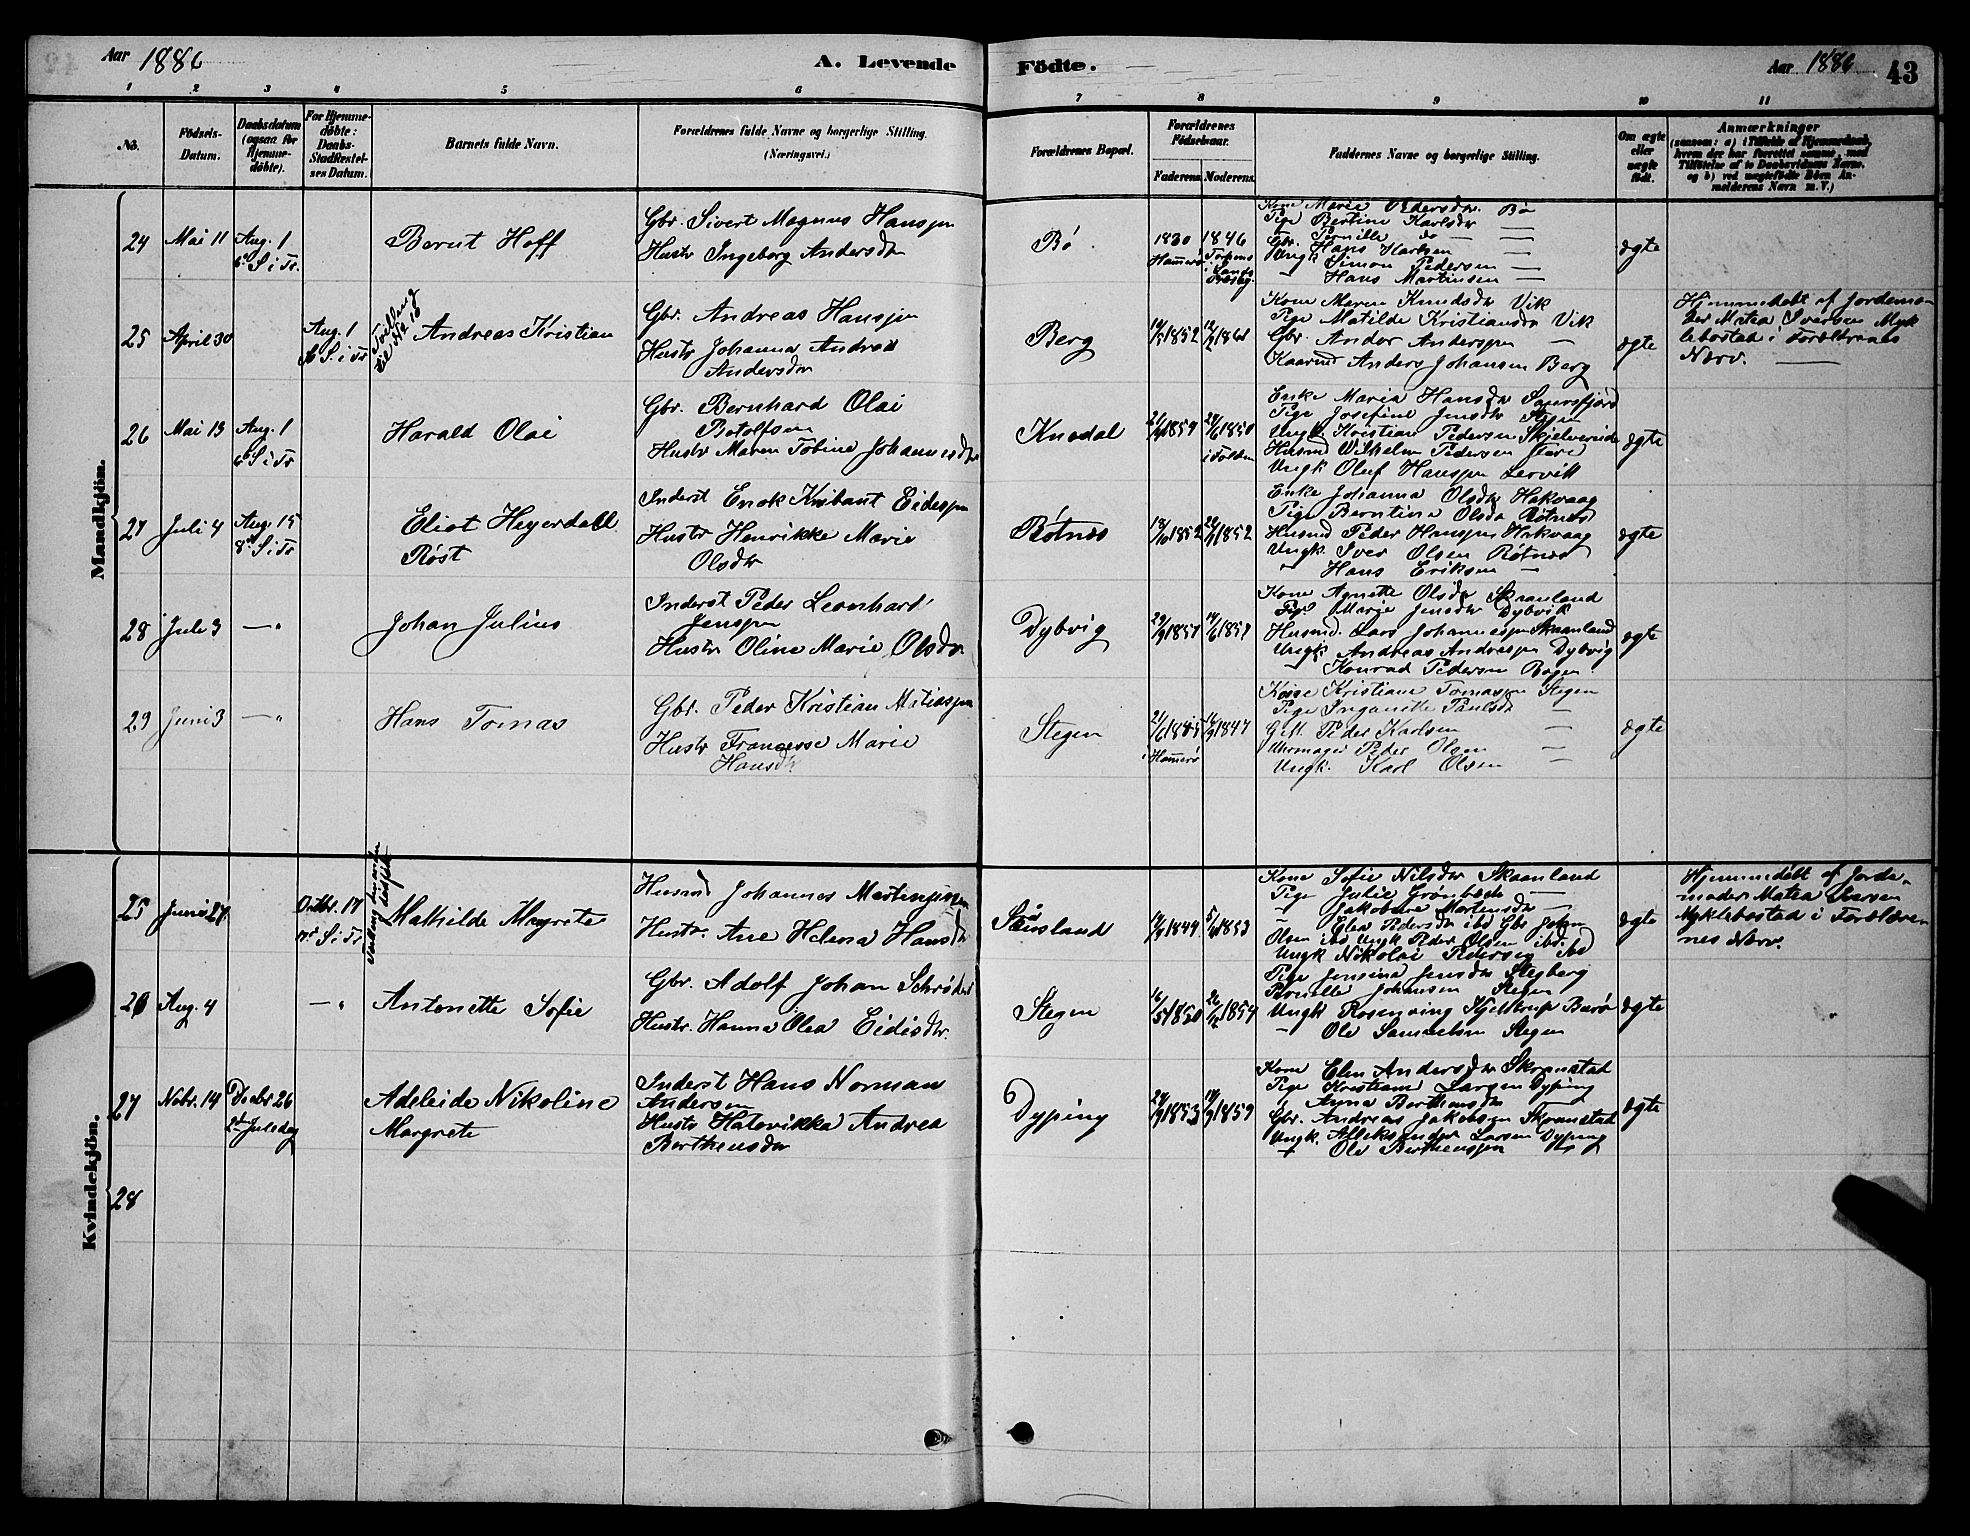 Aar 1886
A. Levende Födte.
Aar 1886 43
1 2 3 4 5 6 7 8 9 10 11
No.
Födsels-Datum.
Daabsdatum (ogsaa for Hjemme-døbte).
For Hjemme-døbte: Daabs-Stadfæstel-ses Datum.
Barnets fulde Navn.
Forældrenes fulde Navne og borgerlige Stilling.
(Næringsvei.)
Forældrenes Bopæl.
Forældrenes Födselsaar.
Faderens. Moderens.
Faddernes Navne og borgerlige Stilling.
Om ægte eller uægte født.
Anmærkninger
(saasom: a) i Tilfælde af Hjemmedaab, hvem der har forrettet samme, med Tilföielse af to Daabsvidners Navne, og b) ved uægtefödte Börn An-melderens Navn m. V.)
Mandkjön.
24 Mai 11 Aug. 1 6 S i Tr.
Berut Hoff
Gbr. Sivert Magnus Hanssen
Hustr Ingeborg Andersdr
Bø
1830 Hamerø
1846
Kone Maria Pedersdr. Bø
Pige Bertine Karlsdr —
Gbr. Pernille do —
Ungk Hans Karlsen —
Simon Pedersen —
Hans Martinsen —
ægte
25 April 30 Aug. 1 6 S i Tr
Tvilling til No 18
Andreas Kristian
Gbr. Andreas Hanssen
Hustr Johanna Andrea
Andersdr
Berg
1852
Kone Maren Knudsdr Vik
Pige Matilde Kristiansdr Vik
Gbr. Andor Anderssen —
Kaarmd Anders Johansen Berg
ægte
Hjemmedøbt af Jordemo-
der Matea Iversen Myk
lebostad i Forældrenes
Nærv.
26 Mai 13 Aug. 1 6 S i Tr
Harald Olai
Gbr. Bernhard Olai
Botolfsen
Hustr Maren Tobine Johannesdr
Knedal
1859 1850 i Folden
Enke Maria Hansdr
Pige Josefine Jensdr Stgn
Ungk Kristian Pedersen Skjelvereide
Husmd Vilhelm Pedersen
Ungk Oluf Hanssen Lervik
ægte
27 Juli 4 Aug. 15 8 S i Tr
Eliot Heyerdahl
Røst
Inderst Enok Eidessen
Hustr Henrikke Marie
Olsdr
Røtnes
18/10 1852 1852
Enke Johanna Olsdr Hakvaag
Pige Berntine Olsdr Røtnes
Husmd Peder Hanssen Hakvaag
Ungk. Iver Olsen Røtnes
" Hans Eriksen —
ægte
28 Juli 3 — "
Johan Julius
Inderst Peder Leonhart
Jenssen
Hustr Oline Marie Olsdr.
Dybvig
1857 1857
Kone Agnette Olsdr Skaanland
Pige Marie Jensdr Dybvik
Husmd. Lars Johannessen Skaanland
Ungk. Andreas Andreassen Dybvig
— Konrad Pedersen Bogen
ægte
29 Juni 3 — "
Hans Tomas
Gbr. Peder Kristian Matiassen
Hustr Francesse Marie
Hansdr
Stegen
i Hamerø
1847
Kristiane Tomassen Stegen
Pige Inganette Paulsdr —
Gift. Peder Karlsen —
Uhrmager Peder Olsen —
Ungk. Karl Olsen —
ægte
Kvindekjön.
25 Juni 27 Octbr. 17 S i Tr
Mathilde Magrete
Husmd Johannes Martenjussen
Hustr. Ane Helena Hansdr
Skaanland
1849 1853
Kone Sofie Nilsdr Skaanland
Pige Julie Grønbech —
— Jakobære Martensdr —
— Elea Pedersdr ibd Gbr Johan
Olsen ibd Ungk Peder Olsen ibd.
Ungk Nikolai Pedersen ibd
ægte
Hjemmedøbt af Jorde-
moder Matea Iversen
Myklebostad i Forældre-
nes Nærv.
26 Aug. 4 — "
Antonette Sofie
Gbr. Adolf Johan Schrøder
Hustr. Hanna Olea Eidisdr.
Stegen
16/5 1850 1854
Pige Jensine Jensdr Stegberg
Pernille Johansen Stegen
Ungk Rosenving Kjeldstrup Burø
— Ole Samuelsen Stegen
ægte
27 Nobr. 14 Decbr 26 2d Juledag
Adeleide Nikoline
Margrete
Inderst Hans Norman
Andersen
Hustr Hatevikka Andrea
Berthensdr
Dyping
1853 1859
Kone Elen Andersdr Skranstad
Pige Kristiane Larsen Dyping
— Anna Berthensdr —
Gbr. Andreas Jakobsen Skranstad
Ungk. Alleksander Larsen Dyping
— Ole Berthenssen —
ægte
28